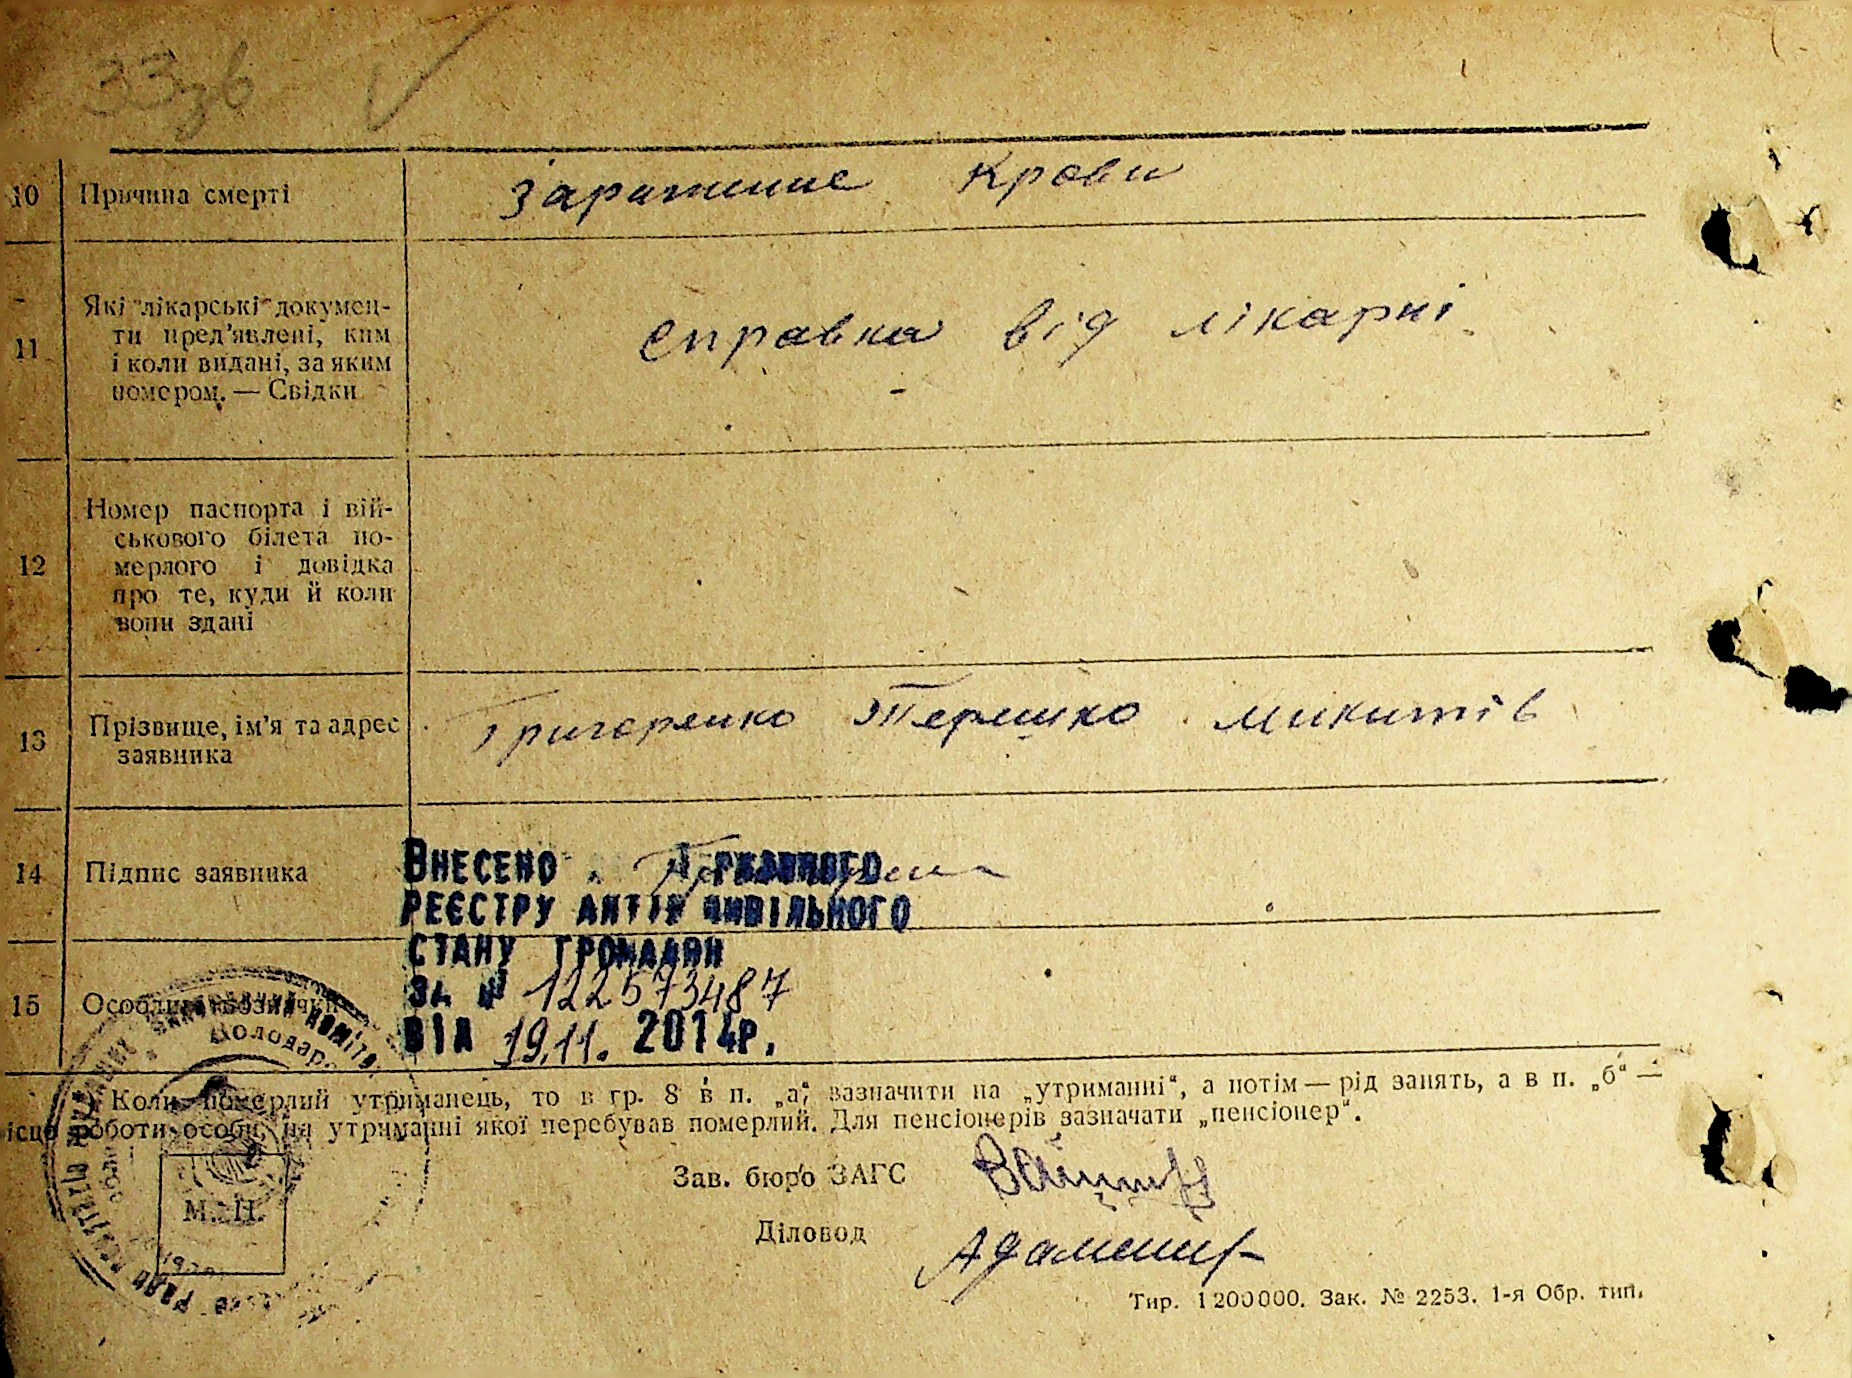 33зв
10 Причина смерті заражение крови
11 Які лікарські докумен-
ти пред'явлені, ким
і коли видані, за яким
номером. — Свідки
справка від лікарні
12 Номер паспорта і вій-
ськового білета по-
мерлого і довідка
про те, куди й коли
вони здані
13 Прізвище, ім'я та адрес
заявника
Григоренко Терешко Микитів
14 Підпис заявника
ВНЕСЕНО ДЕРЖАВНОГО
РЕЄСТРУ АКТІВ ЦИВІЛЬНОГО
СТАНУ ГРОМАДЯН
15 Особливі
ЗА № 122573487
ВІД 19.11. 2014Р.
Коли померлий утриманець, то в гр. 8 в п. „а" зазначити на „утриманні", а потім — рід занять, а в п. „б" —
місце роботи особи, на утриманні якої перебував померлий. Для пенсіонерів зазначати „пенсіонер".
Зав. бюро ЗАГС
Діловод
М. П.
Тир. 1200000. Зак. № 2253. 1-я Обр. тип.